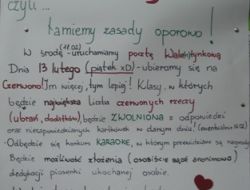 czyli...
łamiemy zasady oporowo!
W środę (11.02) uruchamiamy pocztę Walentynkową
Dnia 13 lutego (piątek xD) - ubieramy się na
Czerwono! Im więcej, tym lepiej! Klasy, w których
będzie największa liczba czerwonych rzeczy
(ubrań, dodatków), będzie ZWOLNIONA z odpowiedzi
oraz niezapowiedzianych kartkówek w danym dniu!
-Odbędzie się konkurs KARAOKE, w którym przewidziano są nagrody
Będzie możliwość złożenia (osobiście bądź anonimowo)
dedykacji piosenki ukochanej osobie.